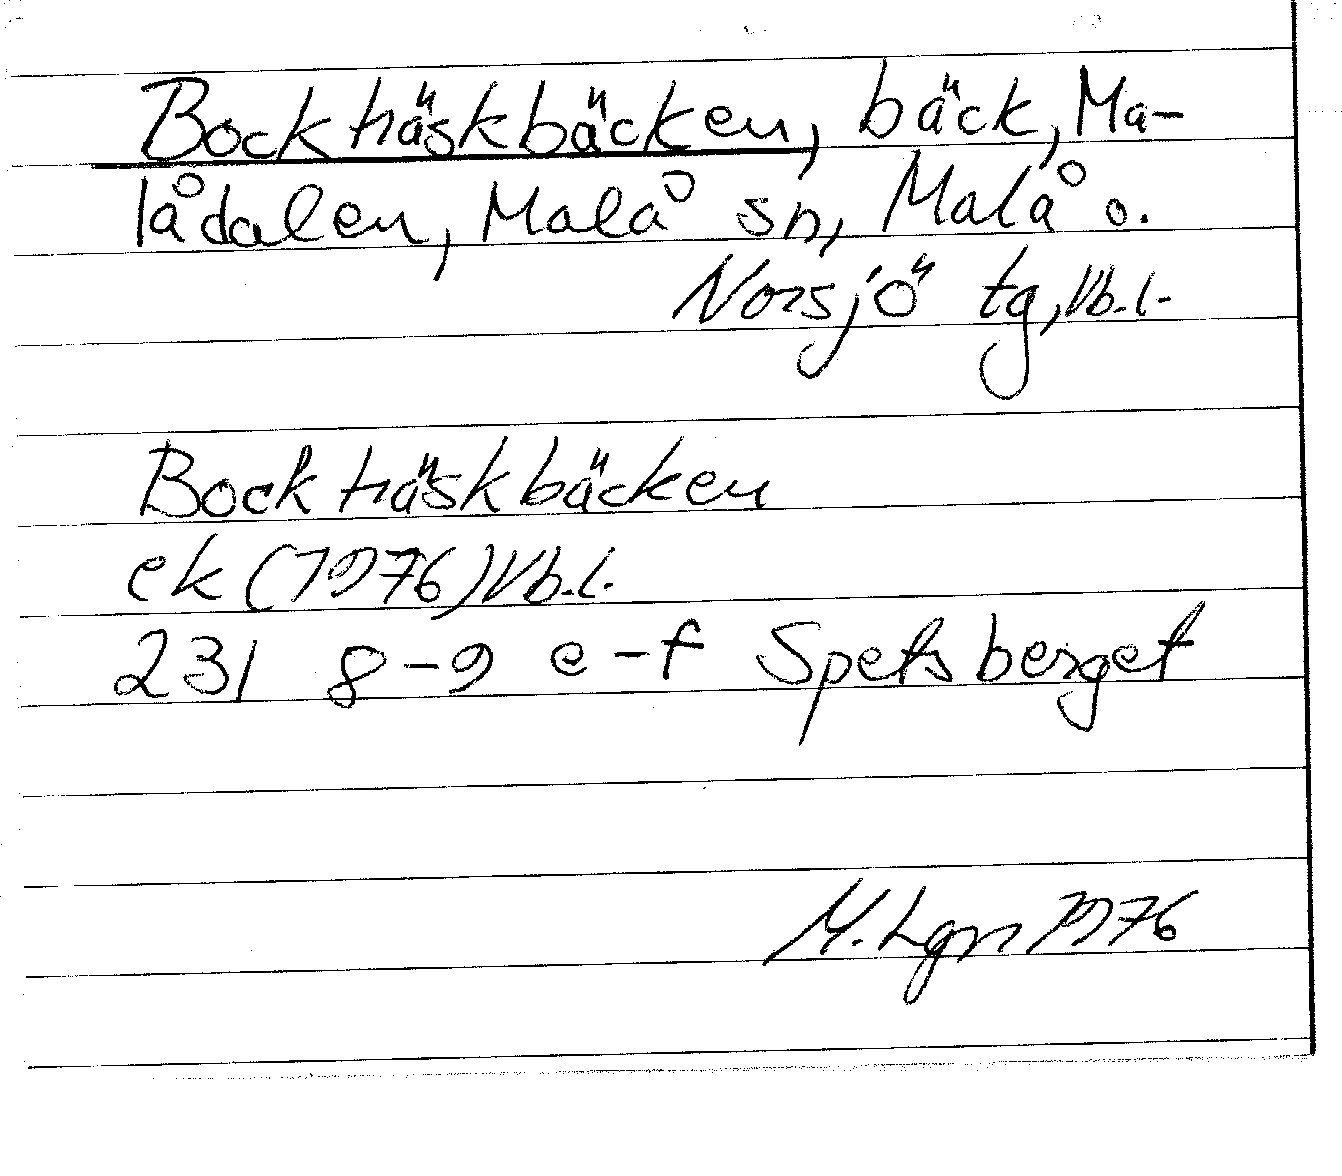 Bockträskbäcken, bäck, Ma-
lådalen, Malå sn, Malå o.
Norsjö tg, Vb.l.
Bockträskbäcken
ek (1976) Vb.l.
231 8-9 e-f Spetsberget
M. Lgn 1976